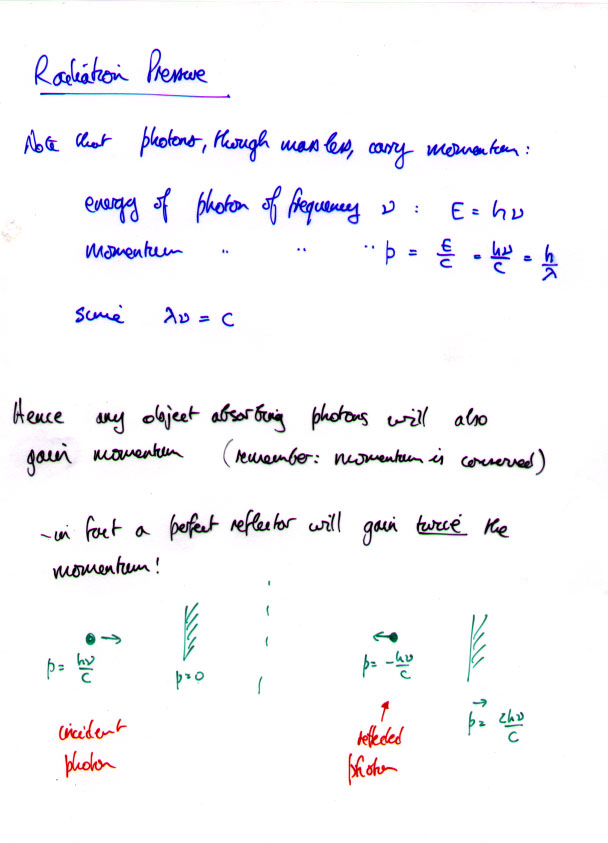 Radiation Pressure
Note that photons, though massless, carry momentum:
energy of photon of frequency ν : E = hν
momentum " " " p = E/c = hν/c = h/λ
since λν = c
Hence any object absorbing photons will also
gain momentum (remember: momentum is conserved)
- in fact a perfect reflector will gain twice the
momentum!
p = hν/c
p=0
p = -hν/c
p = 2hν/c
incident
photon
reflected
photon